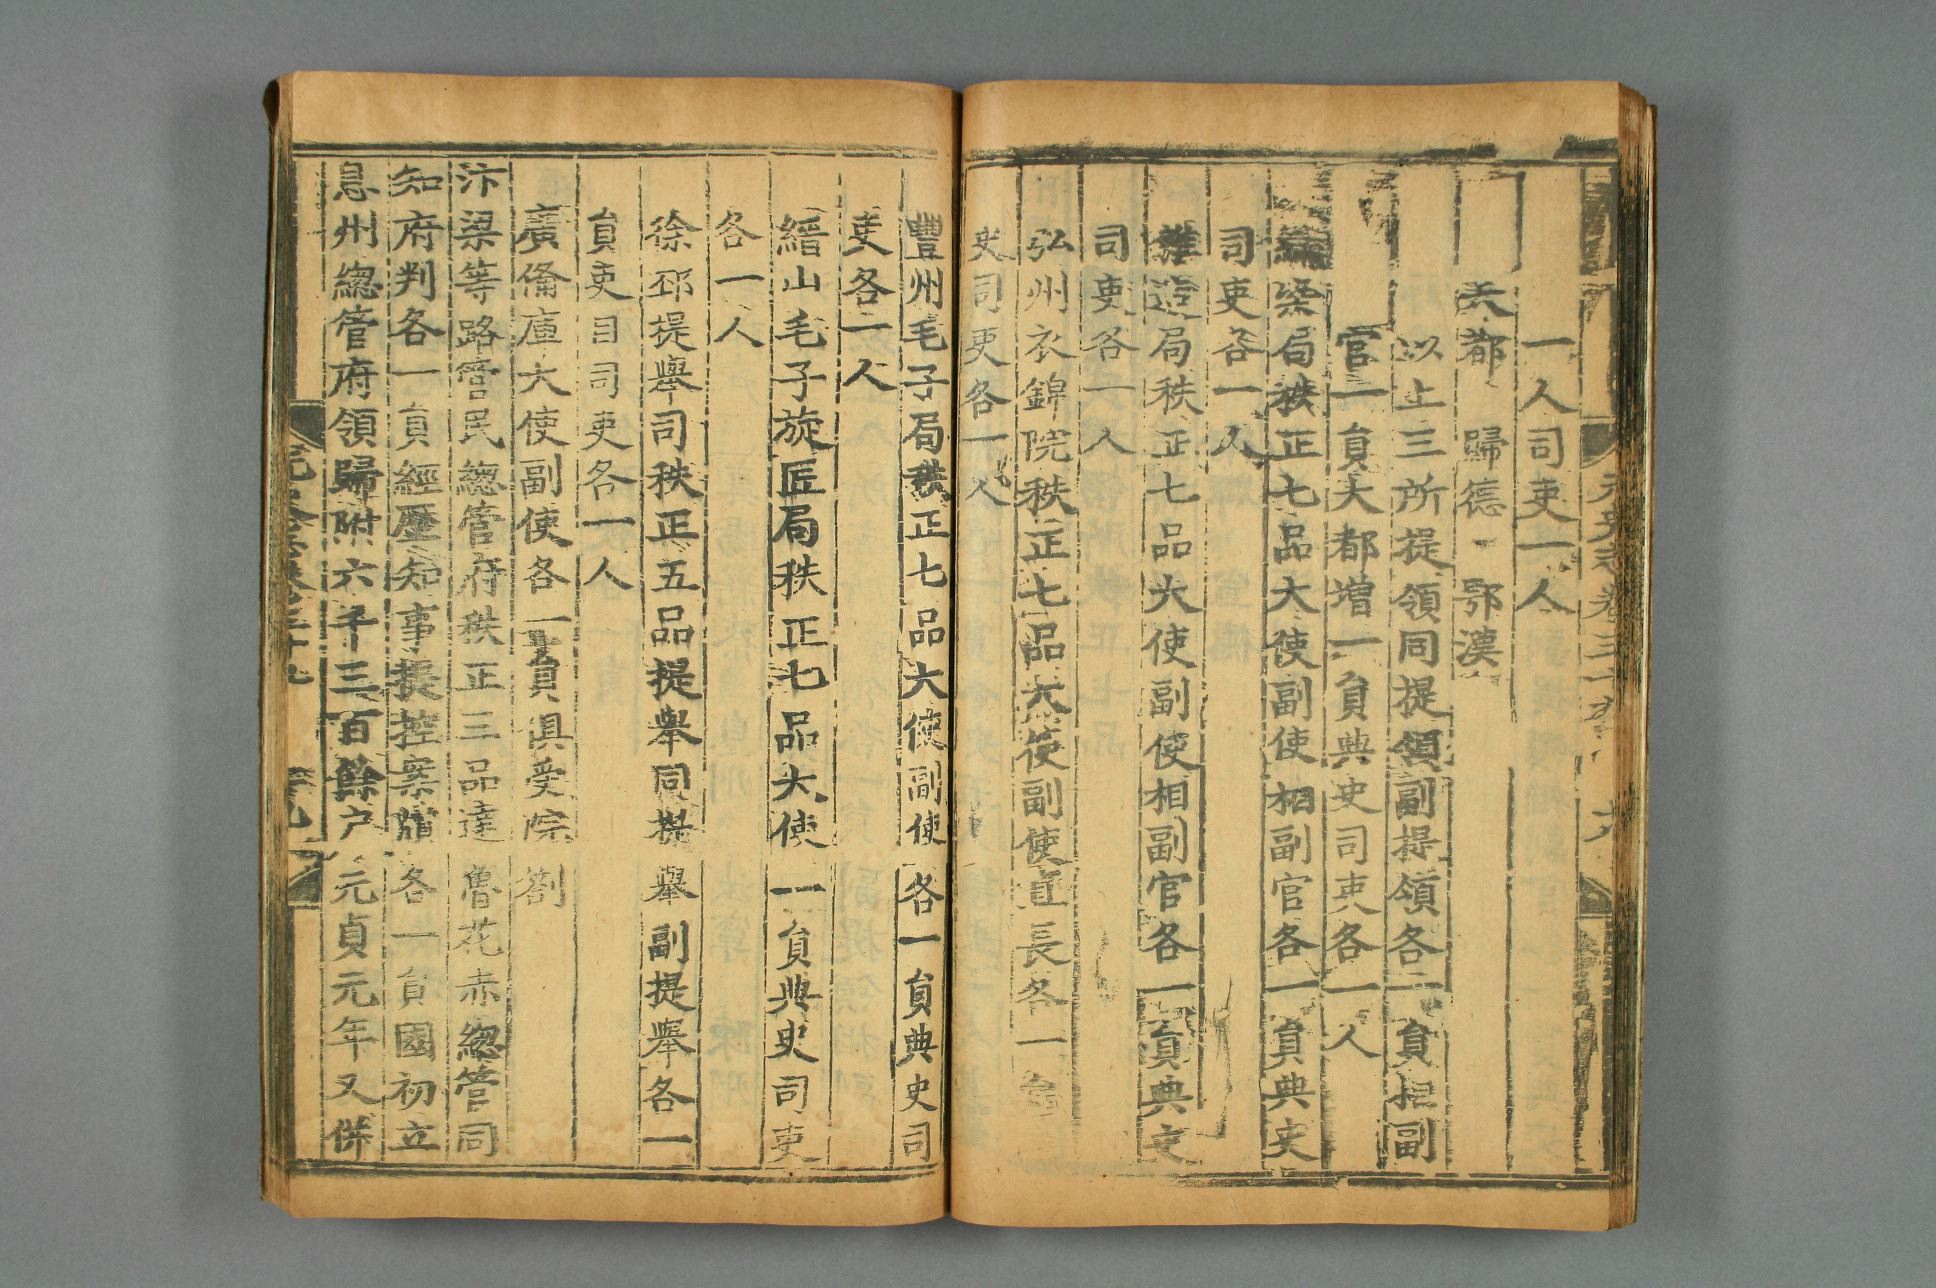 元史志卷三十九 十九
一人司吏一人
大都 歸德 鄂漢
以上三所提領同提領副提領各一員相副
官一員大都增一員典史司吏各一人
染局秩正七品大使副使相副官各一員典史
司吏各一人
雜造局秩正七品大使副使相副官各一員典史
司吏各一人
弘州衣錦院秩正七品大使副使直長各一員
史司吏各一人
豐州毛子局秩正七品大使副使各一員典史司
吏各一人
縉山毛子旋匠局秩正七品大使一員典史司吏
各一人
徐邳提舉司秩正五品提舉同提舉副提舉各一
員吏目司吏各一人
廣備庫大使副使各一員俱受院劄
汴梁等路管民總管府秩正三品達魯花赤總管同
知府判各一員經歷知事提控案牘各一員國初立
息州總管府領歸附六千三百餘户元貞元年又併